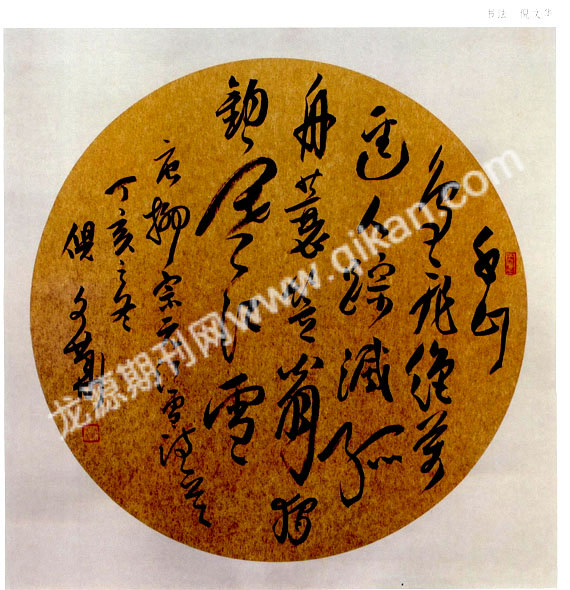 书法 倪文华
千山
鳥飛絶萬
逕人踪滅孤
舟蓑笠翁獨
釣寒江雪
唐柳宗元江雪詩
丁亥之冬
倪文華
龙源期刊网www.qikan.com